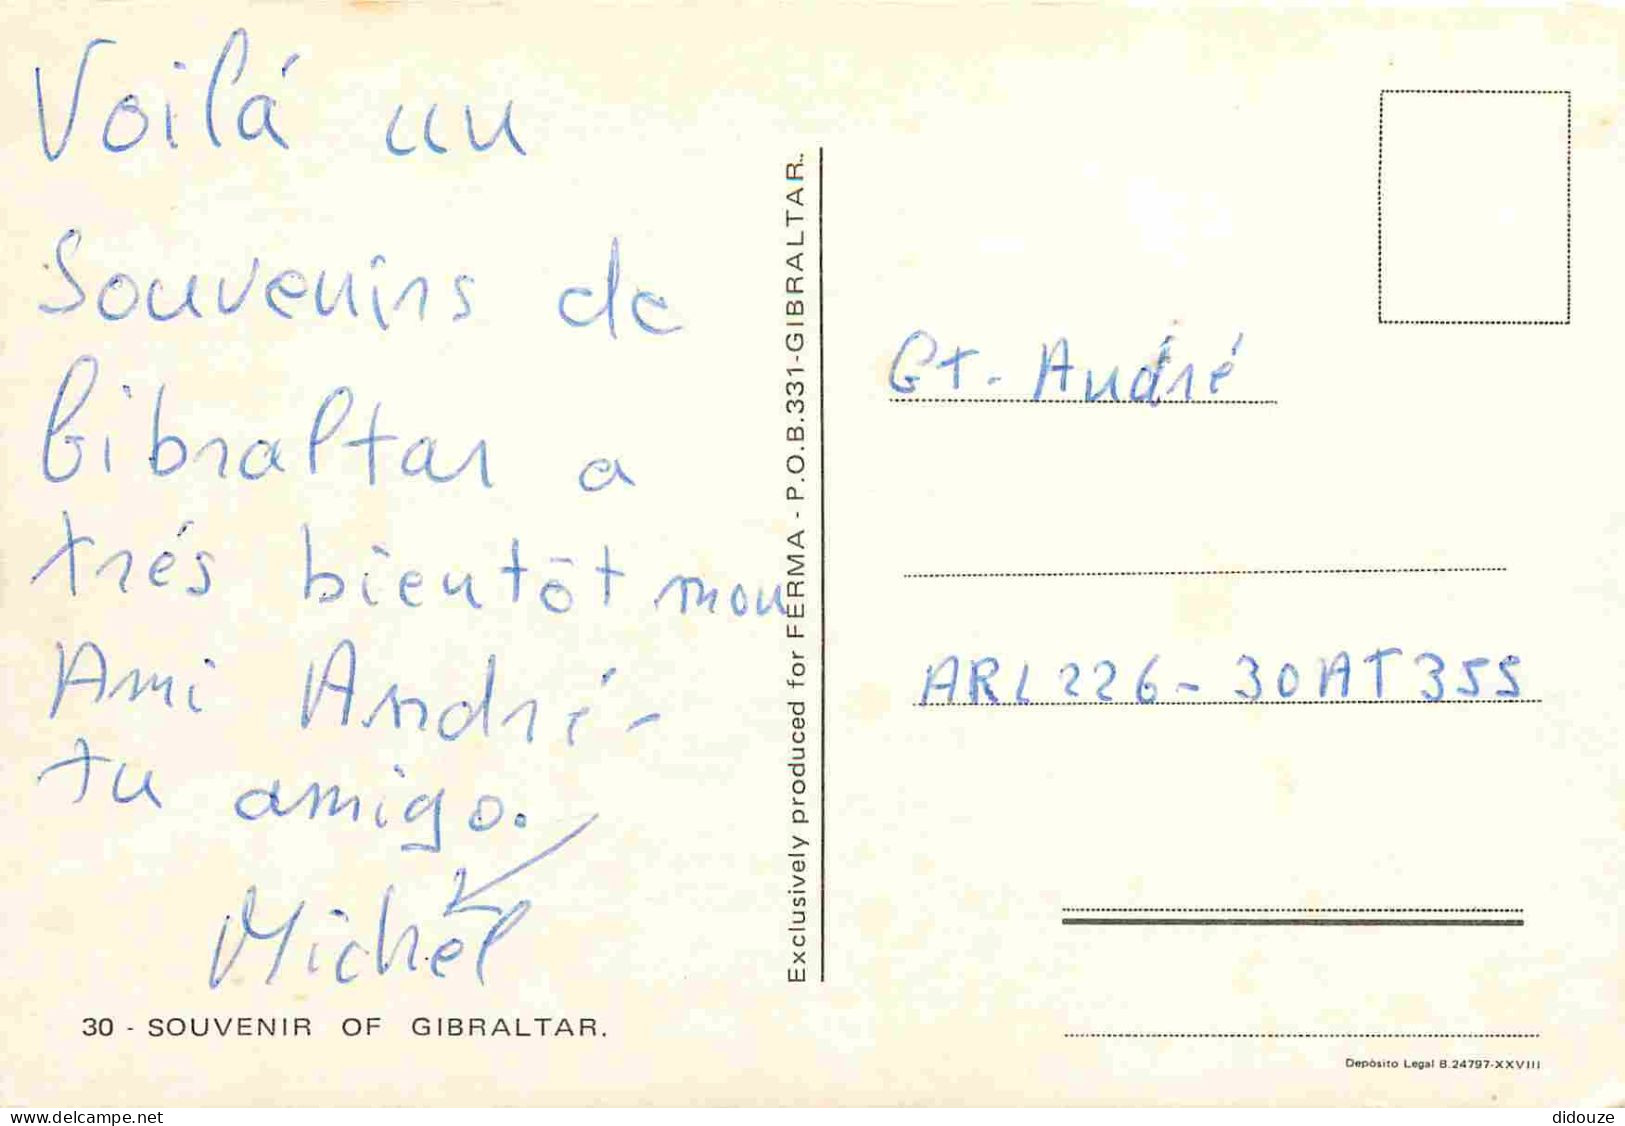 Voilá un
Souvenirs de
Gibraltar a
trés bientôt mon
Ami André -
tu amigo.
Michel
30 - SOUVENIR OF GIBRALTAR.
Exclusively produced for FERMA - P.O.B.331-GIBRALTAR.
Gt. André
ARL226 - 30AT355
Depòsito Legal B.24797-XXVIII
www.delcampe.net
didouze